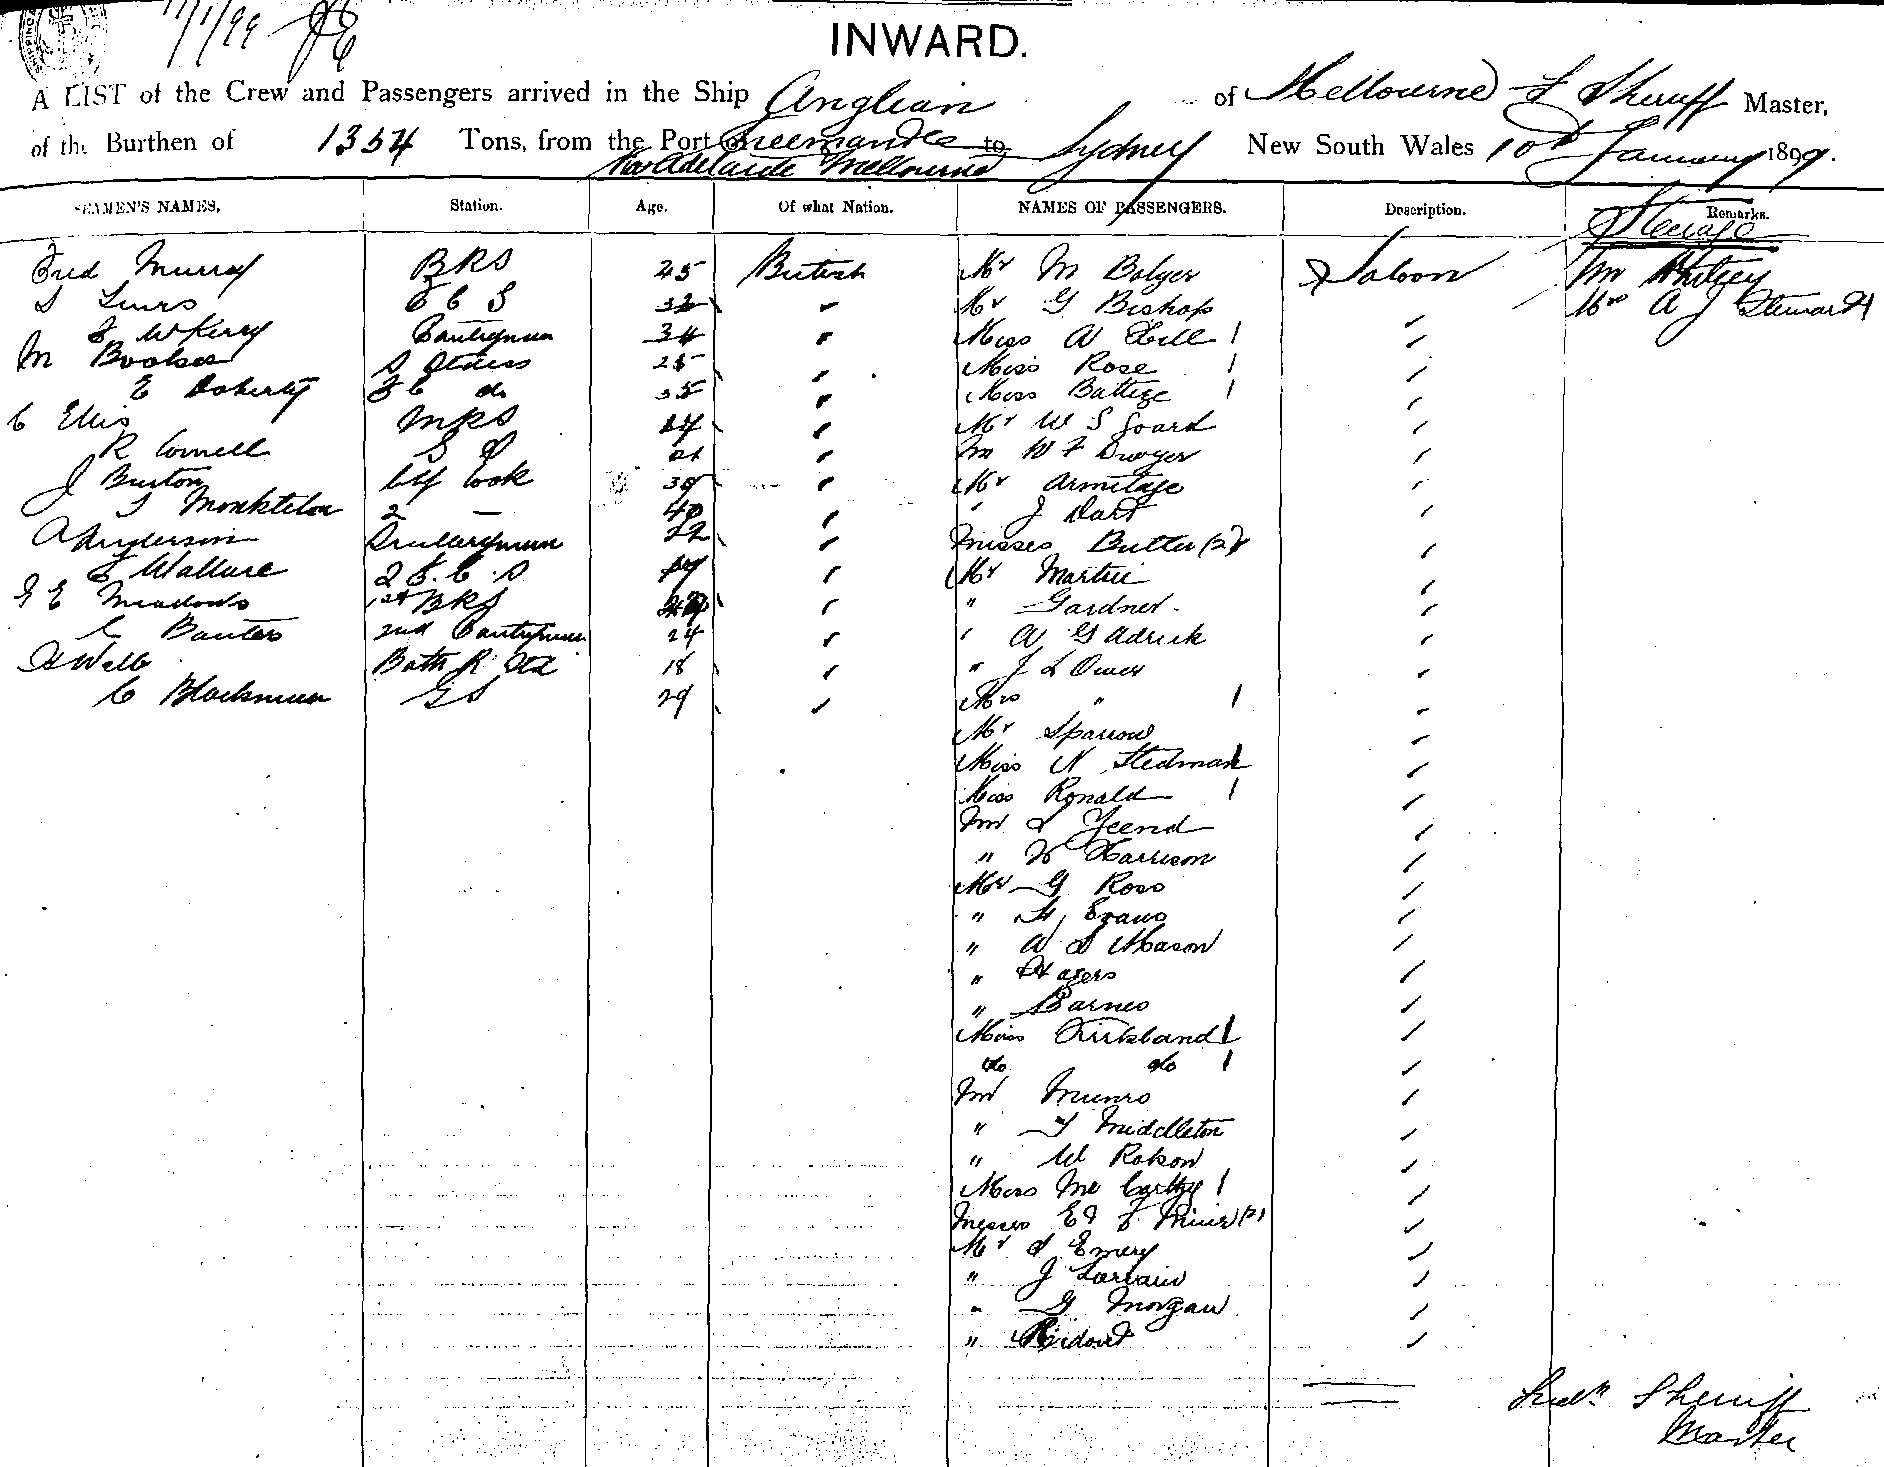 11/1/99
INWARD.
A LIST of the Crew and Passengers arrived in the Ship Anglian of Melbourne F Sherriff Master,
of the Burthen of 1354 Tons, from the Port of Freemantle to Sydney New South Wales 10th January 1899.
Via Adelaide Melbourne
SEAMEN'S NAMES. Station. Age. Of what Nation. NAMES OF PASSENGERS. Description. Remarks.
Steerage
Fred Murray BRS 45 British Mr M Bolger Saloon Mr Whitley
Mr G Bishop " Mrs A J Steward 1
Pantryman 34 " Miss A Hill 1 "
M 25 " Miss Rose 1 "
E Doherty do 35 " Miss Battye 1 "
C Ellis MRS " Mr W S Goard "
R Cornell 21 " Mr W F Dwyer "
J Burton Chf Cook " Mr Armitage "
Monkteton 2 — 40 " " J Dart "
Anderson Sculleryman 22 " Misses Butter (2) "
Wallace " Mr Martin "
G E Meadows 1st BRS " " Gardner "
2nd Pantryman 24 " " A G Adrick "
Webb Bath R Std 18 " " J L Owen "
C Blackman GS 29 " Mrs " 1 "
Mr Sparrow "
Miss N Stedman 1 "
Miss Ronald 1 "
Mr Yeend "
" Harrison "
Mr G Ross "
" H Evans "
" A S Mason "
" Hagers "
" Barnes "
Miss Kirkland 1 "
do do 1 "
Mr Munro "
" T Middleton "
" W Robson "
Miss Mc Carthy 1 "
Misses E & F Muir (2) "
Mr S Emery "
" J Lorrain "
" G Morgan "
" Ridout "
Fredk Sherriff
Master